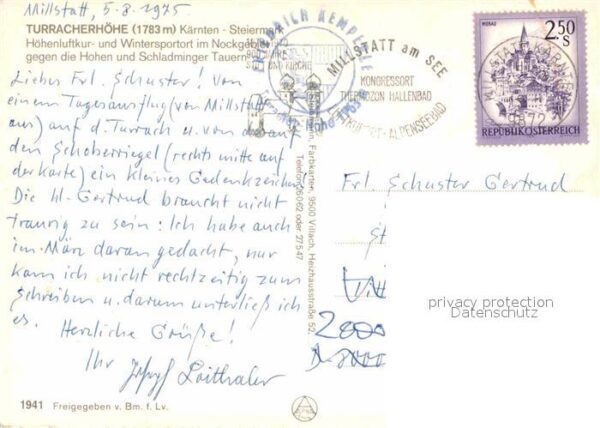 Millstatt, 5.8.1985
TURRACHERHÖHE (1783 m) Kärnten - Steiermark
Höhenluftkur- und Wintersportort im Nockgebiet
gegen die Hohen und Schladminger Tauern
Liebes Frl. Schuster! Von
einem Tagesausflug (von Millstatt
aus) auf d. Turrach u. von da auf
den Schoberriegel (rechts mitte auf
der Karte) ein kleines Gedenkzeichen.
Die hl. Gertrud braucht nicht
traurig zu sein: Ich habe auch
im März daran gedacht, nur
kam ich nicht rechtzeitig zum
Schreiben u. darum unterließ ich
es. Herzliche Grüße!
Ihr Loithaler
1941 Freigegeben v. Bm. f. Lv.
Farbkarten, 9500 Villach, Heizhausstraße 52,
Telefon 26062 oder 27547
MILLSTATT am SEE
KONGRESSORT
THERMOZON HALLENBAD
ALPENSEEBAD
MILLSTATT, KÄRNTEN
9872
2.50
S
MURAU
REPUBLIK ÖSTERREICH
Frl. Schuster Gertrud
St
privacy protection
Datenschutz